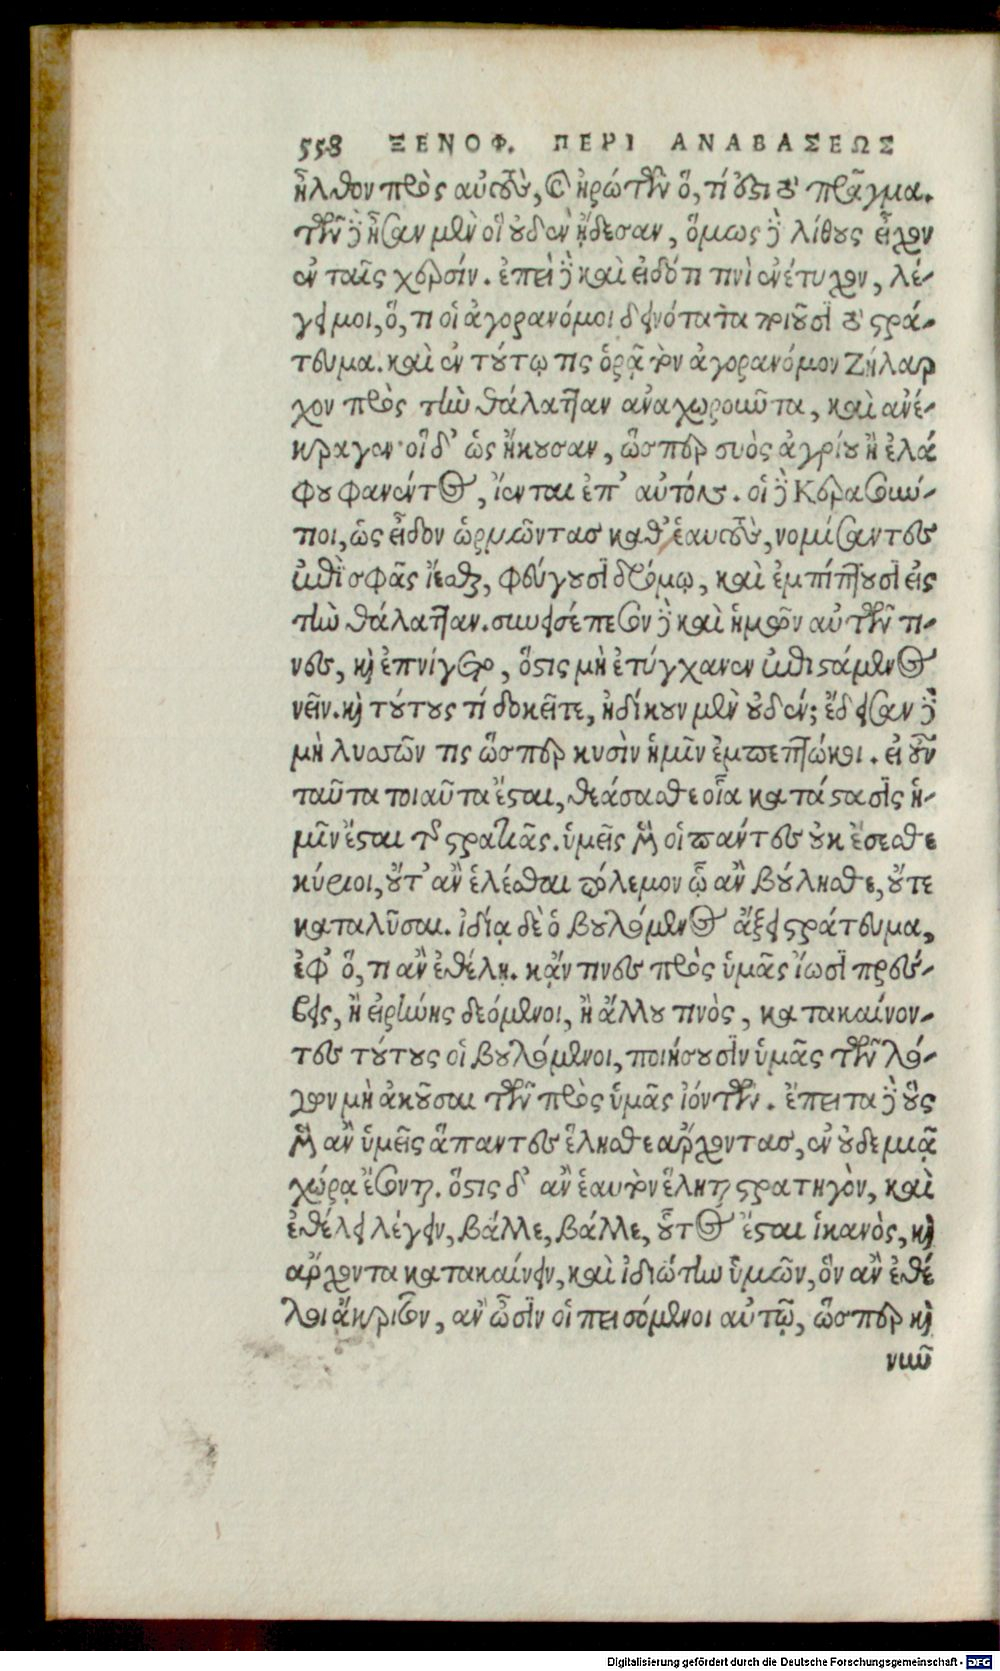 558 ΞΕΝΟΦ. ΠΕΡΙ ΑΝΑΒΑΣΕΩΣ
ἦλθον πρὸς αὐτοὺς, καὶ ἠρώτων ὅ, τί ἐστι τὸ πρᾶγμα.
τῶν δὲ ἦσαν μὲν οἳ οὐδὲν ᾔδεσαν, ὅμως δὲ λίθους εἶχον
ἐν ταῖς χερσίν. ἐπεὶ δὲ καὶ εἰδότι τινὶ ἐνέτυχον, λέ-
γει μοι, ὅ, τι οἱ ἀγορανόμοι δεινότατα ποιοῦσι τὸ στρά-
τευμα. καὶ ἐν τούτῳ τις ὁρᾷ τὸν ἀγορανόμον Ζήλαρ
χον πρὸς τὴν θάλατταν ἀναχωροῦντα, καὶ ἀνέ-
κραγεν· οἳ δ' ὡς ἤκουσαν, ὥσπερ συὸς ἀγρίου ἢ ἐλά
φου φανέντος, ἵενται ἐπ' αὐτόν. οἱ δὲ Κερασούν-
ποι, ὡς εἶδον ὁρμῶντας καθ' ἑαυτοὺς, νομίσαντες
ἐπὶ σφᾶς ἵεσθαι, φεύγουσι δρόμῳ, καὶ ἐμπίπτουσι εἰς
τὴν θάλατταν. συνεισέπεσον δὲ καὶ ἡμῶν αὐτῶν τι-
νες, καὶ ἐπνίγετο, ὅστις μὴ ἐτύγχανεν ἐπιστάμενος
νεῖν. καὶ τούτους τί δοκεῖτε, ἠδίκουν μὲν οὐδέν; ἔδεισαν δὲ
μὴ λυσσῶν τις ὥσπερ κυσὶν ἡμῖν ἐμπεπτώκοι. εἰ οὖν
ταῦτα τοιαῦτα ἔσται, θεάσασθε οἵα κατάστασις ἡ-
μῖν ἔσται τῆς στρατιᾶς. ὑμεῖς μὲν οἱ πάντες οὐκ ἔσεσθε
κύριοι, οὔτ' ἂν ἑλέσθαι πόλεμον ᾧ ἂν βούλησθε, οὔτε
καταλῦσαι. ἰδίᾳ δὲ ὁ βουλόμενος ἄξει στράτευμα,
ἐφ' ὅ, τι ἂν ἐθέλῃ. κἄν τινες πρὸς ὑμᾶς ἴωσι πρέσ-
βεις, ἢ εἰρήνης δεόμενοι, ἢ ἄλλου τινὸς, κατακαίνον-
τες τούτους οἱ βουλόμενοι, ποιήσουσιν ὑμᾶς τῶν λό-
γων μὴ ἀκοῦσαι τῶν πρὸς ὑμᾶς ἰόντων. ἔπειτα δὲ οὓς
μὲν ἂν ὑμεῖς ἅπαντες ἕλησθε ἄρχοντας, ἐν οὐδεμιᾷ
χώρᾳ ἔσονται. ὅστις δ' ἂν ἑαυτὸν ἕληται στρατηγὸν, καὶ
ἐθέλει λέγειν, βάλλε, βάλλε, οὗτος ἔσται ἱκανὸς, καὶ
ἄρχοντα κατακαίνειν, καὶ ἰδιώτην ὑμῶν, ὃν ἂν ἐθέ
λοι ἄκριτον, ἂν ὦσιν οἱ πεισόμενοι αὐτῷ, ὥσπερ καὶ
νῦν
Digitalisierung gefördert durch die Deutsche Forschungsgemeinschaft - DFG